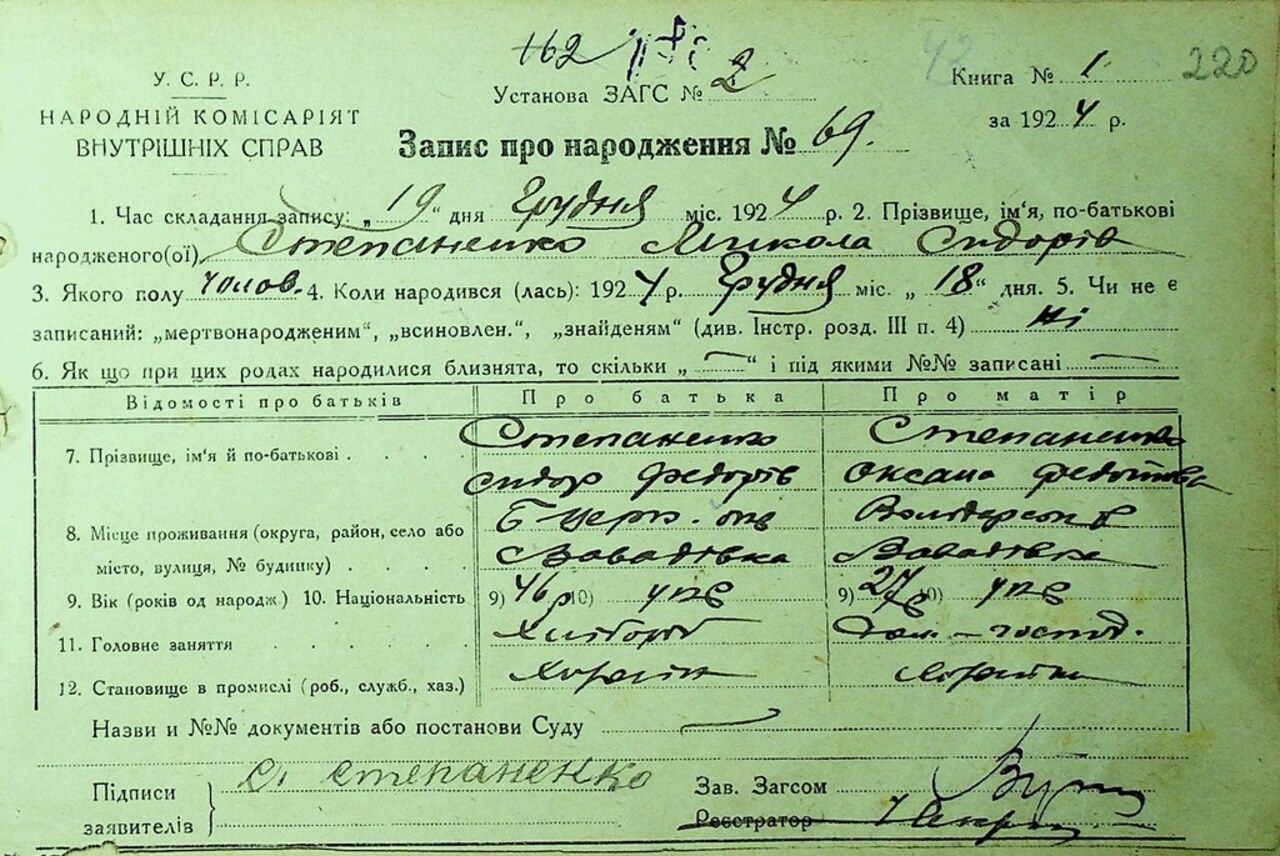 162
42
220
У. С. Р. Р.
НАРОДНІЙ КОМІСАРІЯТ
ВНУТРІШНІХ СПРАВ
Установа ЗАГС № 2
Книга № 1
за 1924 р.
Запис про народження № 69.
1. Час складання запису: „19“ дня Грудня міс. 1924 р. 2. Прізвище, ім'я, по-батькові
народженого(ої) Степаненко Микола Сидорів
3. Якого полу чолов. 4. Коли народився (лась): 1924 р. Грудня міс. „18“ дня. 5. Чи не є
записаний: „мертвонародженим“, „всиновлен.“, „знайденям“ (див. Інстр. розд. III п. 4) Ні
6. Як що при цих родах народилися близнята, то скільки „ — “ і під якими №№ записані —
Відомості про батьків Про батька Про матір
7. Прізвище, ім'я й по-батькові . . . . Степаненко Степаненко
Сидор Федорів Оксана
8. Місце проживання (округа, район, село або Б Церк. окр
місто, вулиця, № будинку) . . . . Завадівка Завадівка
9. Вік (років од народж.) 10. Національність 9) 46 р 10) укр 9) 27 р 10) укр
11. Головне заняття . . . . . . Хлібороб Дом – господ.
12. Становище в промислі (роб., служб., хаз.) Хозяїн
Назви и №№ документів або постанови Суду —
Підписи
заявителів
С. Степаненко
Зав. Загсом
Реєстратор